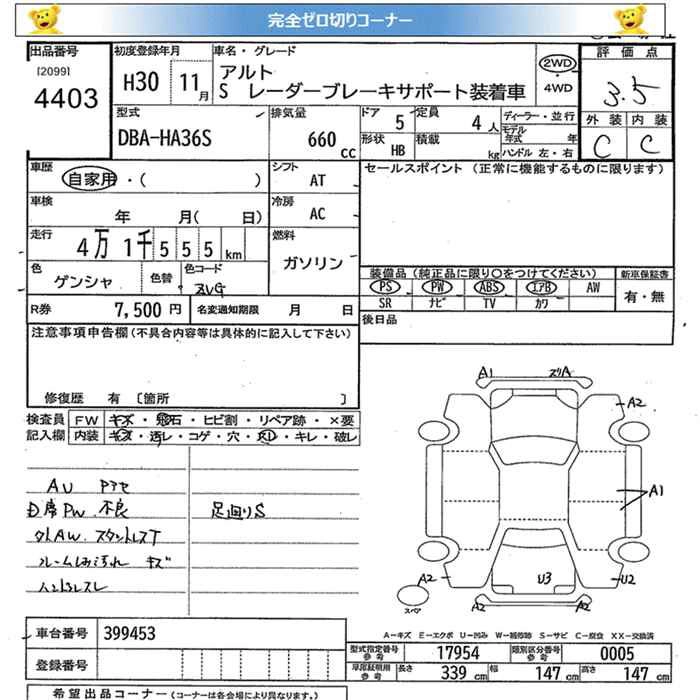 完全ゼロ切りコーナー
出品番号
[2099]
4403
初度登録年月
H30 11月
車名・グレード
アルト
S レーダーブレーキサポート装着車
2WD
・
4WD
評価点
3.5
外装 内装
C C
型式
DBA-HA36S
排気量
660 cc
ドア 5
定員 4 人
形状 HB
積載 kg
ディーラー・並行
モデル年式 年
ハンドル 左・右
車歴
自家用・( )
シフト
AT
セールスポイント (正常に機能するものに限ります)
車検
年 月( 日)
冷房
AC
走行
4万1千555km
燃料
ガソリン
色
ゲンシャ
色替
色コード
ZVG
装備品(純正品に限り○をつけてください)
PS PW ABS エアB AW
SR ナビ TV カワ
新車保証書
有・無
R券 7,500円
名変通知期限 月 日
後日品
注意事項申告欄(不具合内容等は具体的に記入して下さい)
修復歴 有 [箇所 ]
検査員
記入欄
FW キズ・飛石・ヒビ割・リペア跡・×要
内装 キズ・汚レ・コゲ・穴・スレ・キレ・破レ
AU アナセ
D席PW 不良
外AW. スタントレスT
ルームしみ汚れ キズ
ハンドルスレ
足廻りS
A1
ズリA
A2
A1
A2
U3
U2
A2
A2
スペア
A-キズ E-エクボ U-凹み W-補修跡 S-サビ C-腐食 XX-交換済
車台番号 399453
登録番号
型式指定番号
参考
17954
類別区分番号
参考
0005
車庫証明用
参考
長さ 339 cm
幅 147 cm
高さ 147 cm
希望出品コーナー(コーナーは各会場により異なります。)